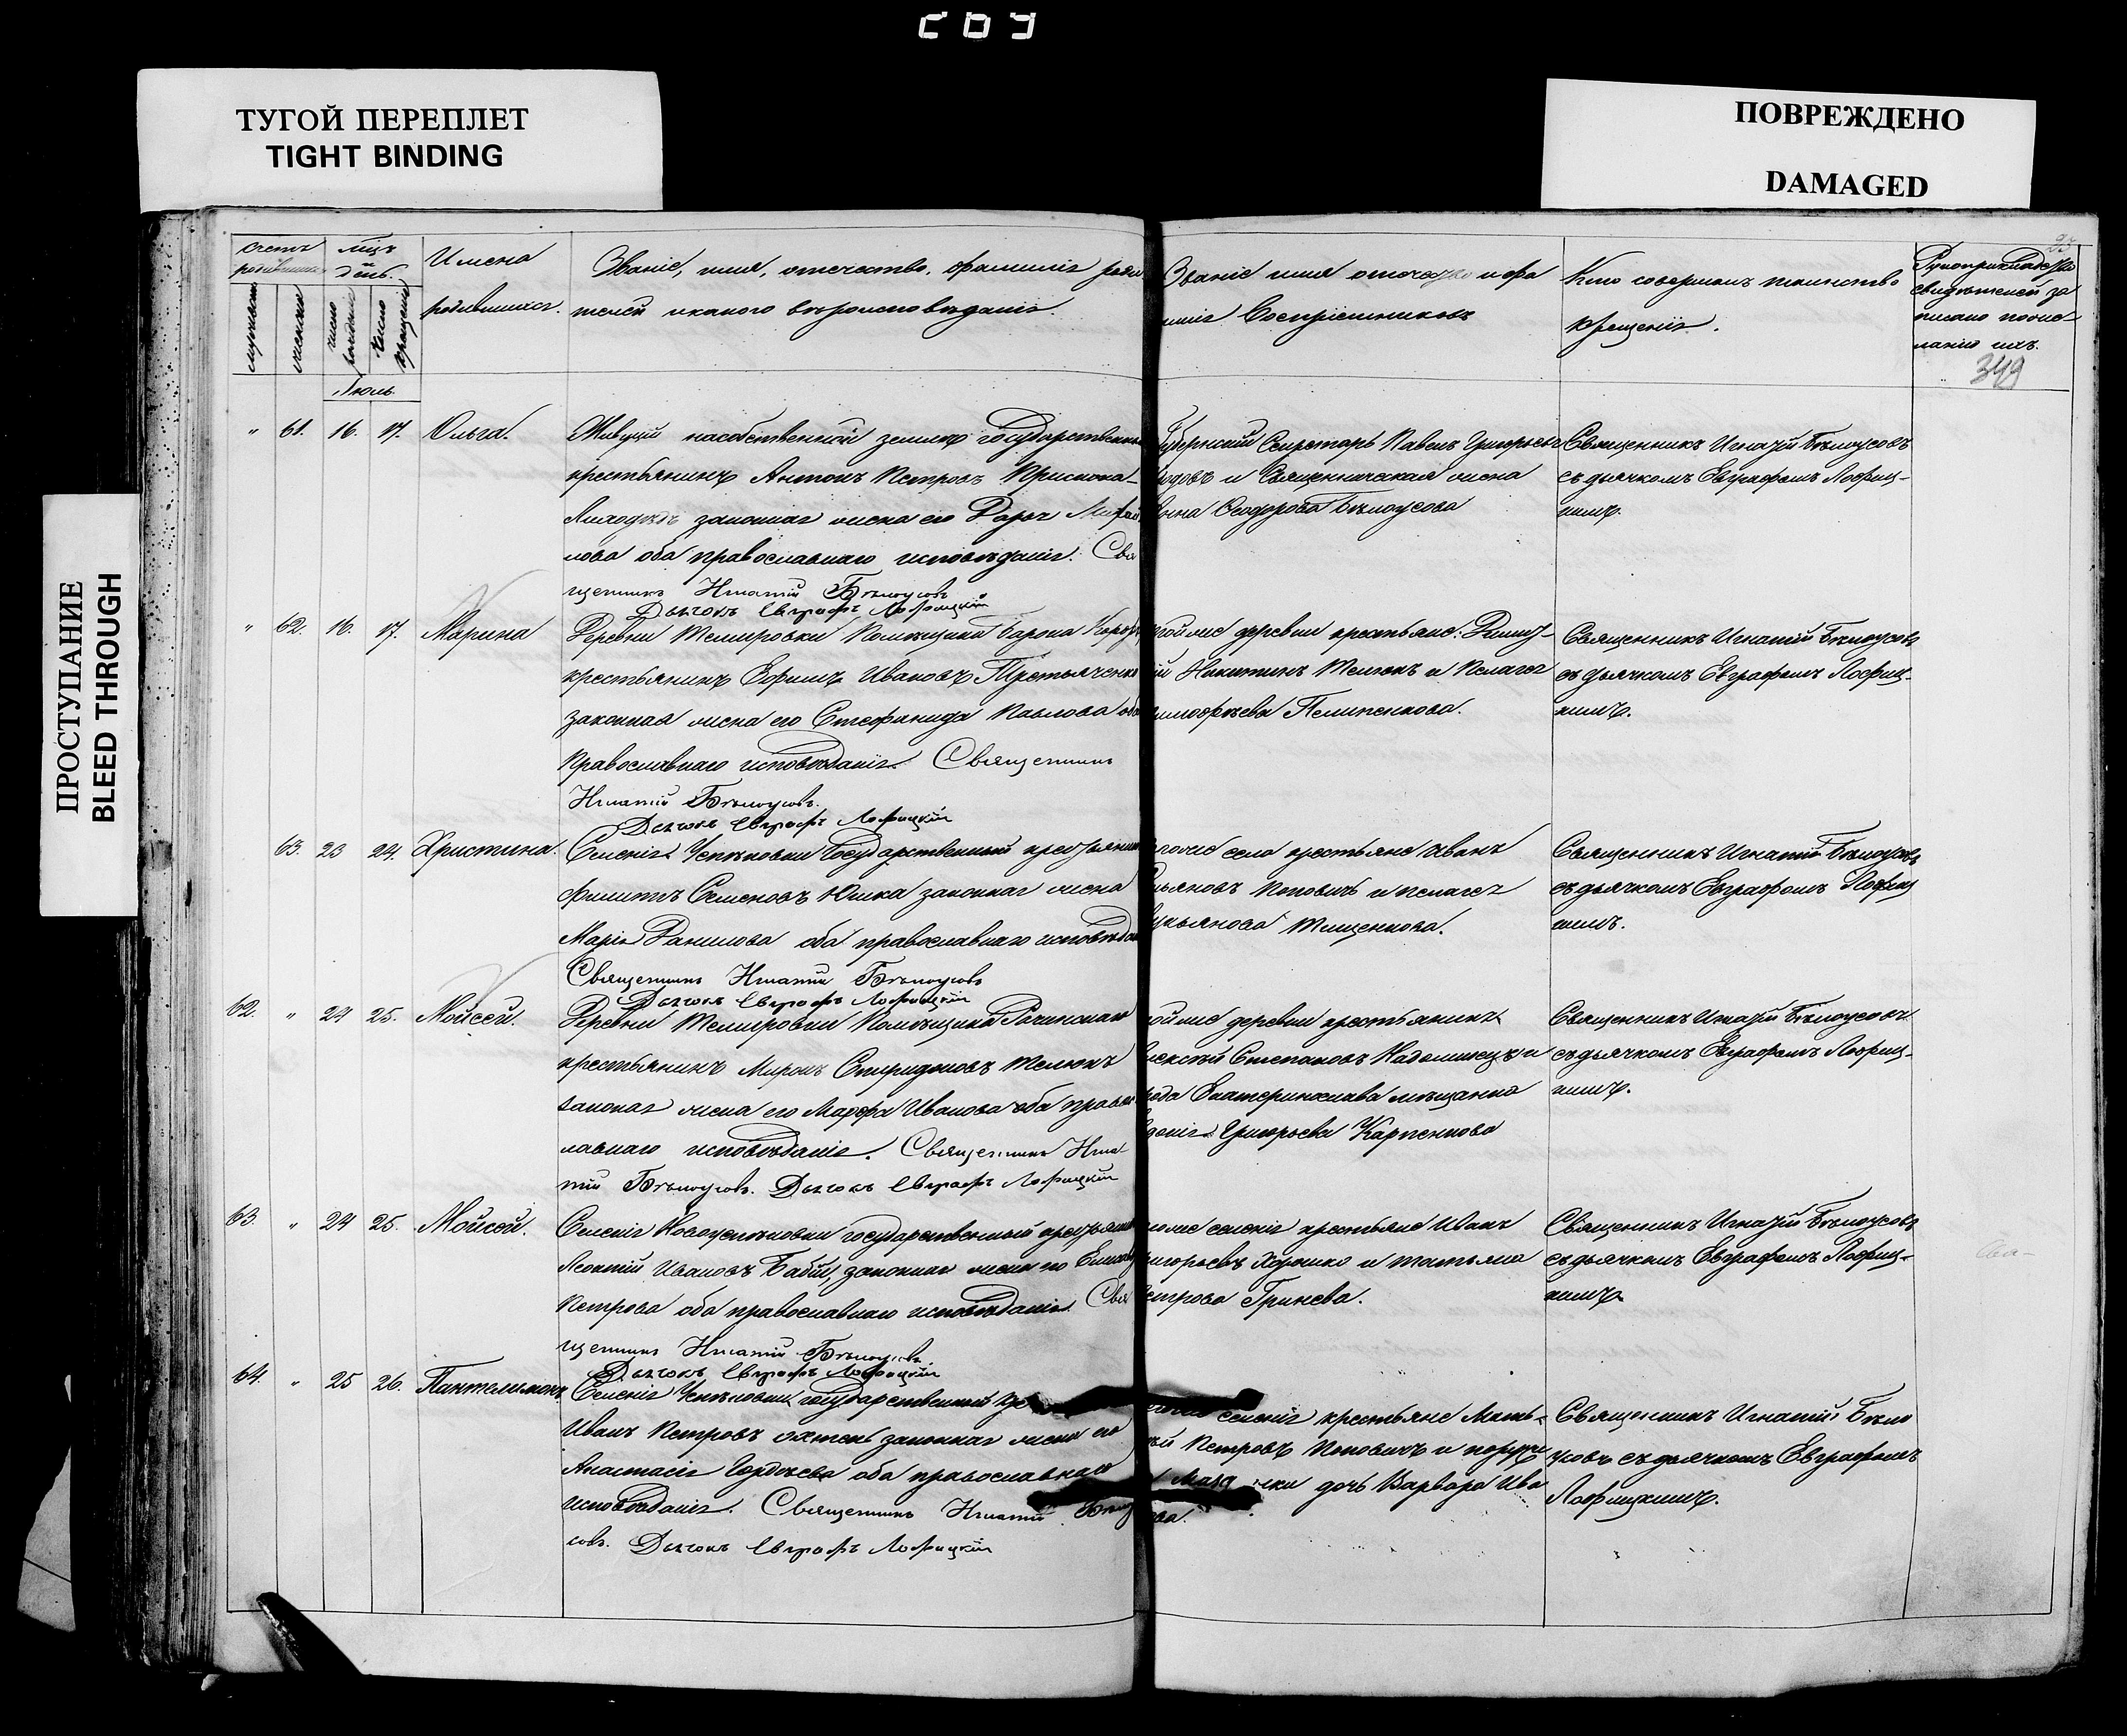 СОЭ
ТУГОЙ ПЕРЕПЛЕТ
TIGHT BINDING
ПОВРЕЖДЕНО
DAMAGED
ПРОСТУПАНИЕ
BLEED THROUGH
Счетъ
мѣсяцъ
день.
Имена
родившихся.
Званіе, имя, отечество, фамилія роди
телей и какого вѣроисповѣданія.
Званіе имя отечество и фа
милія Воспріемниковъ
Кто совершалъ таинство
Крещенія.
Рукоприкладство
свидѣтелей за
писано по
ланію ихъ.
349
мужеска
женска
число рожденія
число крещенія
Іюль.
" 61. 16. 17. Ольга.
Живущій на собственной землѣ государственный
крестьянинъ Антонъ Петровъ
законная жена его Дарья Михай
лова оба православнаго исповѣданія. Свя
щенникъ Игнатій Бѣлоусовъ
Дьячокъ Евграфъ Лофицкій
Губернскій Секретарь Павелъ Григорьев
и Священническая жена
Анна Ѳеодорова Бѣлоусова
Священникъ Игнатій Бѣлоусовъ
съ дьячкомъ Евграфомъ Лофиц-
кимъ.
" 62. 16. 17. Марина
Деревни Темировки Помѣщика Барона
крестьянинъ Ефимъ Ивановъ Третьяченко
законная жена его Стефанида Павлова оба
Православнаго исповѣданія. Священникъ
Игнатій Бѣлоусовъ.
Дьячокъ Евграфъ Лофицкій
той же деревни крестьяне:
Никитинъ Телюкъ и Пелагея
Тимофѣева Пелипенкова.
Священникъ Игнатій Бѣлоусовъ
съ дьячкомъ Евграфомъ Лофиц-
кимъ.
63. 23 24. Христина.
Селенія Успѣновки Государственный крестьянинъ
Филиппъ Семеновъ Юшка законная жена
Марія Данилова оба православнаго исповѣдан
Священникъ Игнатій Бѣлоусовъ
Дьячокъ Евграфъ Лофицкій
того же села крестьяне Иванъ
Поповичъ и Пелагея
Лукьянова Тищенкова.
Священникъ Игнатій Бѣлоусовъ
съ дьячкомъ Евграфомъ Лофиц
кимъ.
62. " 24 25. Мойсей.
Деревни Темировки Помѣщика
крестьянинъ Миронъ Спиридоновъ Телюкъ
законная жена его Марфа Иванова оба правос
лавнаго исповѣданія. Священникъ Игна
тій Бѣлоусовъ. Дьячокъ Евграфъ Лофицкій
той же деревни крестьянинъ
Алексѣй Степановъ и
города Екатеринослава мѣщанка
Евдокія Григорьева Карпенкова
Священникъ Игнатій Бѣлоусовъ
съ дьячкомъ Евграфомъ Лофиц-
кимъ.
63. " 24 25. Мойсей.
Селенія Новоуспѣновки государственный крестьянинъ
Леонтій Ивановъ Бабій, законная жена его
Петрова оба православнаго исповѣданія. Свя
щенникъ Игнатій Бѣлоусовъ
Дьячокъ Евграфъ Лофицкій
того же селенія крестьяне Иванъ
Григорьевъ Хорошко и Татьяна
Петрова Гринева.
Священникъ Игнатій Бѣлоусовъ
съ дьячкомъ Евграфомъ Лофиц-
кимъ
64. " 25 26. Пантелимонъ
Селенія Успѣновки государственный кре
Иванъ Петровъ законная жена его
Анастасія Гордѣева оба православнаго
исповѣданія. Священникъ Игнатій Бѣлоу
совъ. Дьячокъ Евграфъ Лофицкій
селенія крестьяне Матъ-
вѣй Петровъ Поповичъ и
дочь Варвара Ива
нова.
Священникъ Игнатій Бѣло
усовъ съ дьячкомъ Евграфомъ
Лофицкимъ.